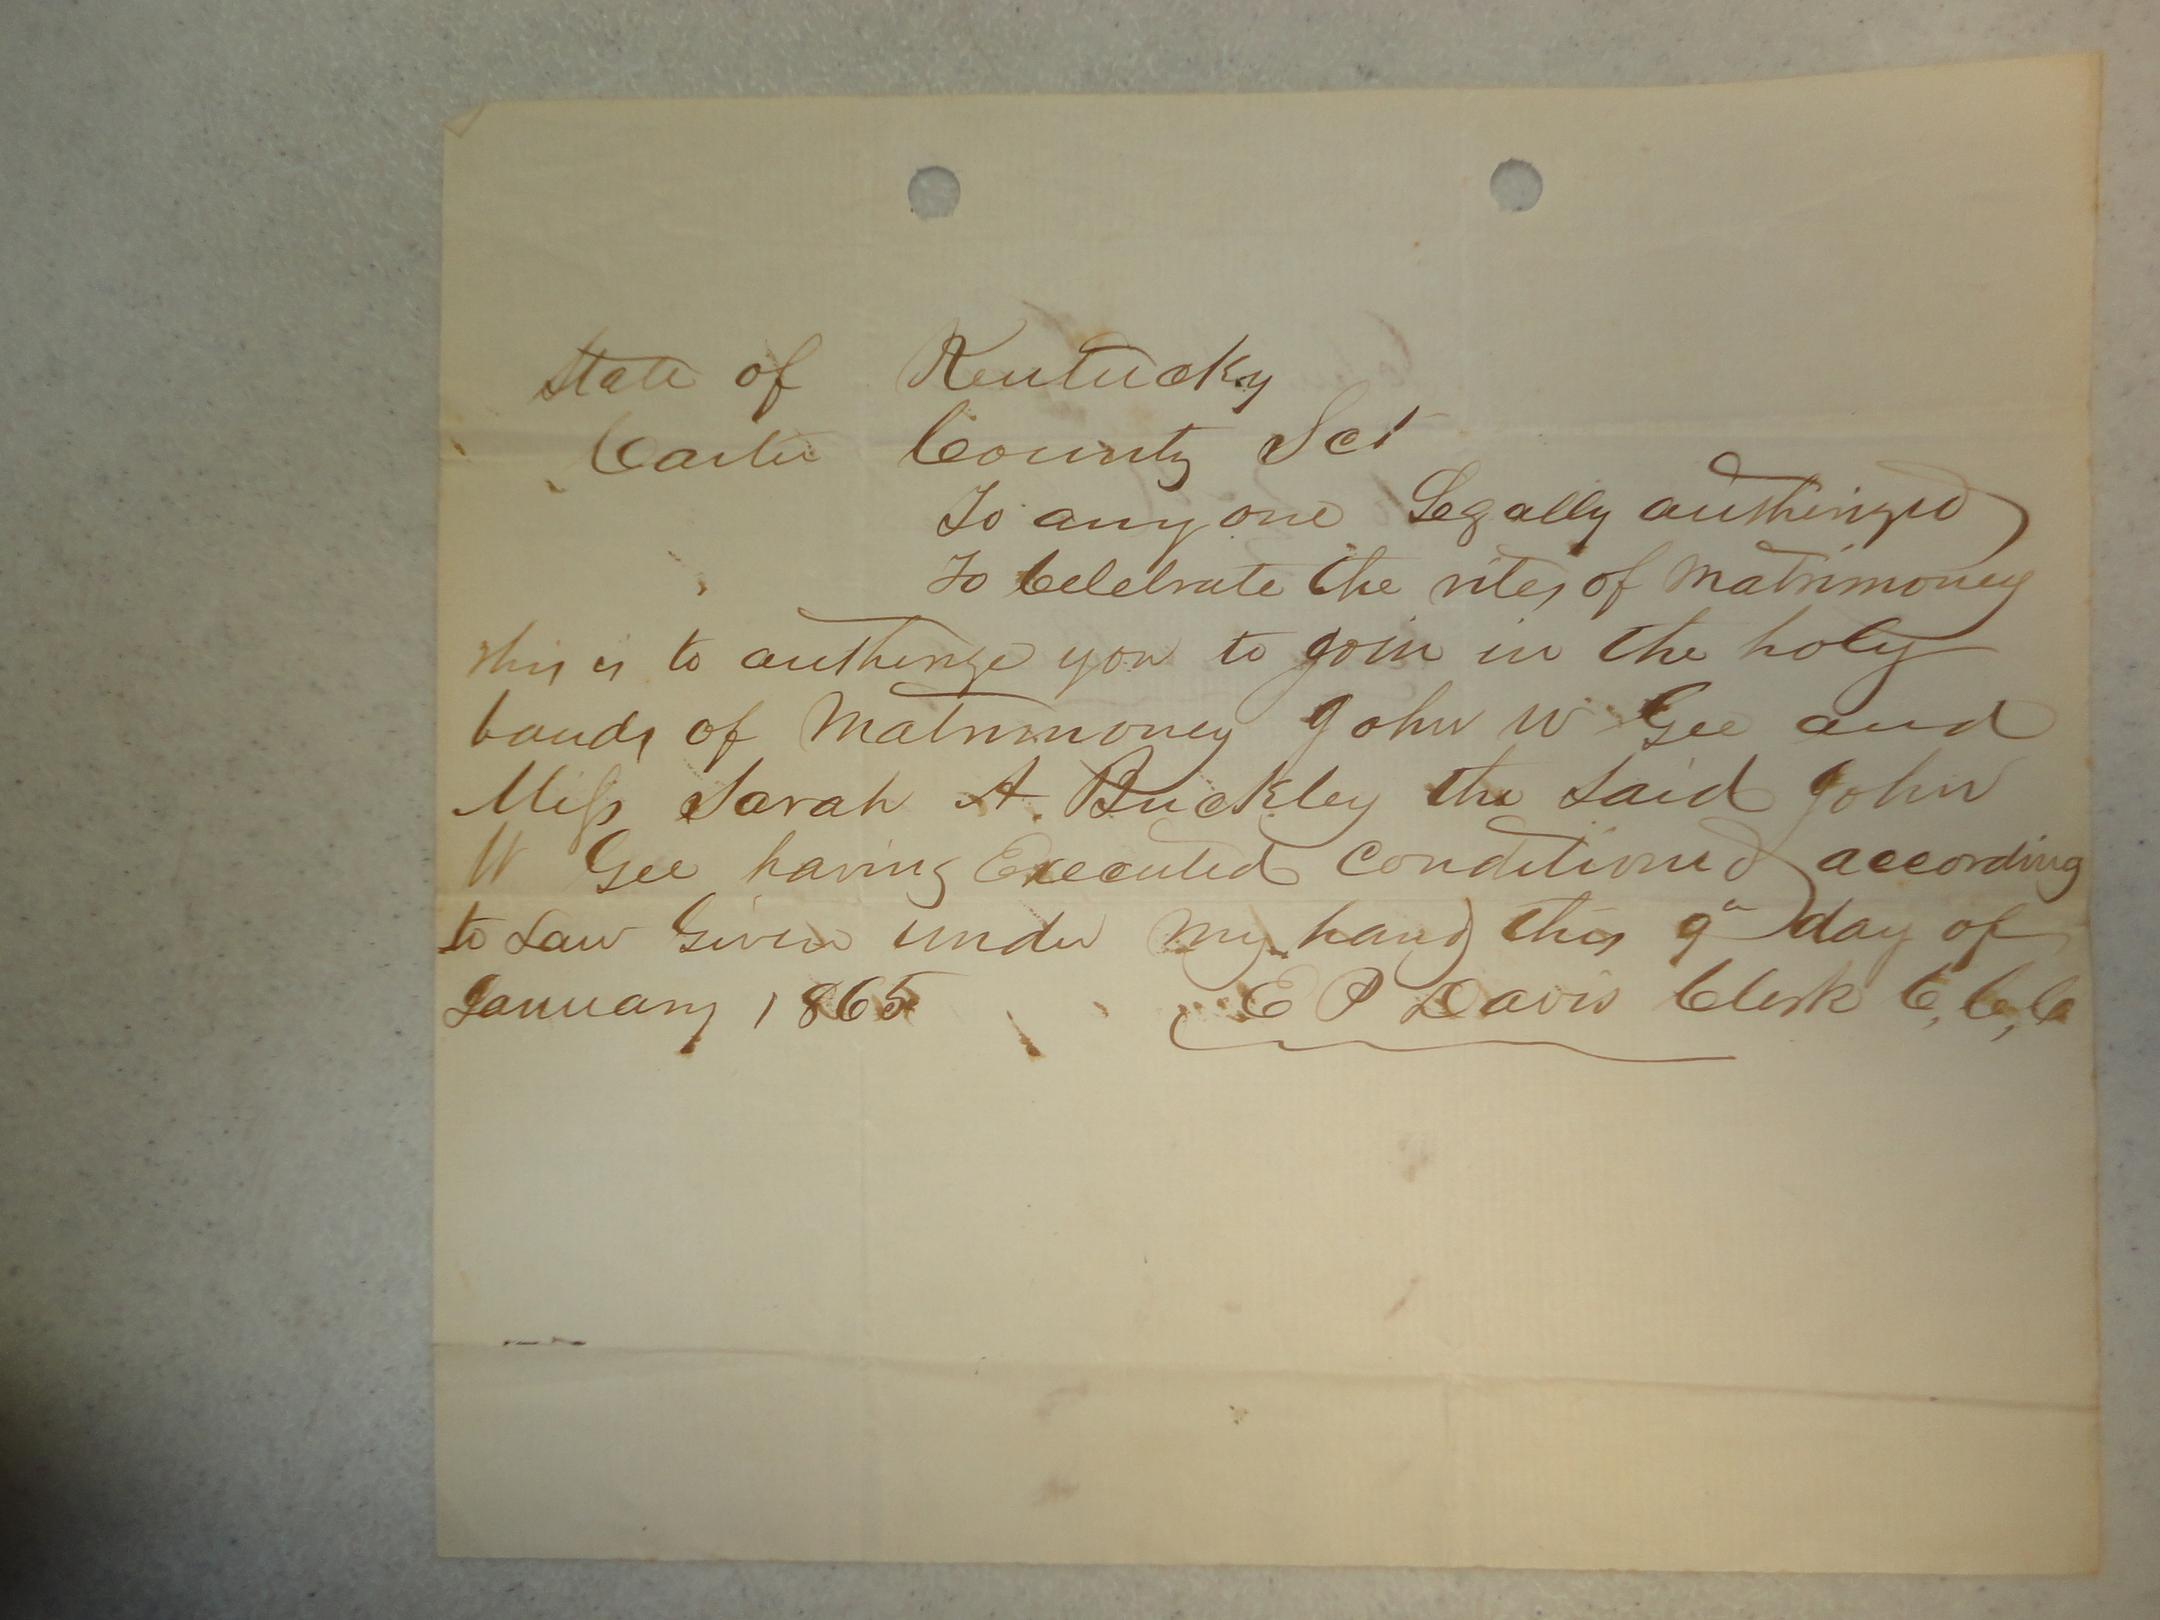 State of Kentucky
Carter County Sct
To any one Legally authirized
To Celebrate the rites of Matrimoney
this is to authirize you to join in the holy
bands of Matrimoney John W Gee and
Miss Sarah A. Buckley the said John
W Gee having Executed Conditioned according
to Law Given under my hand this 9th day of
January 1865 E P Davis Clerk C, C, C